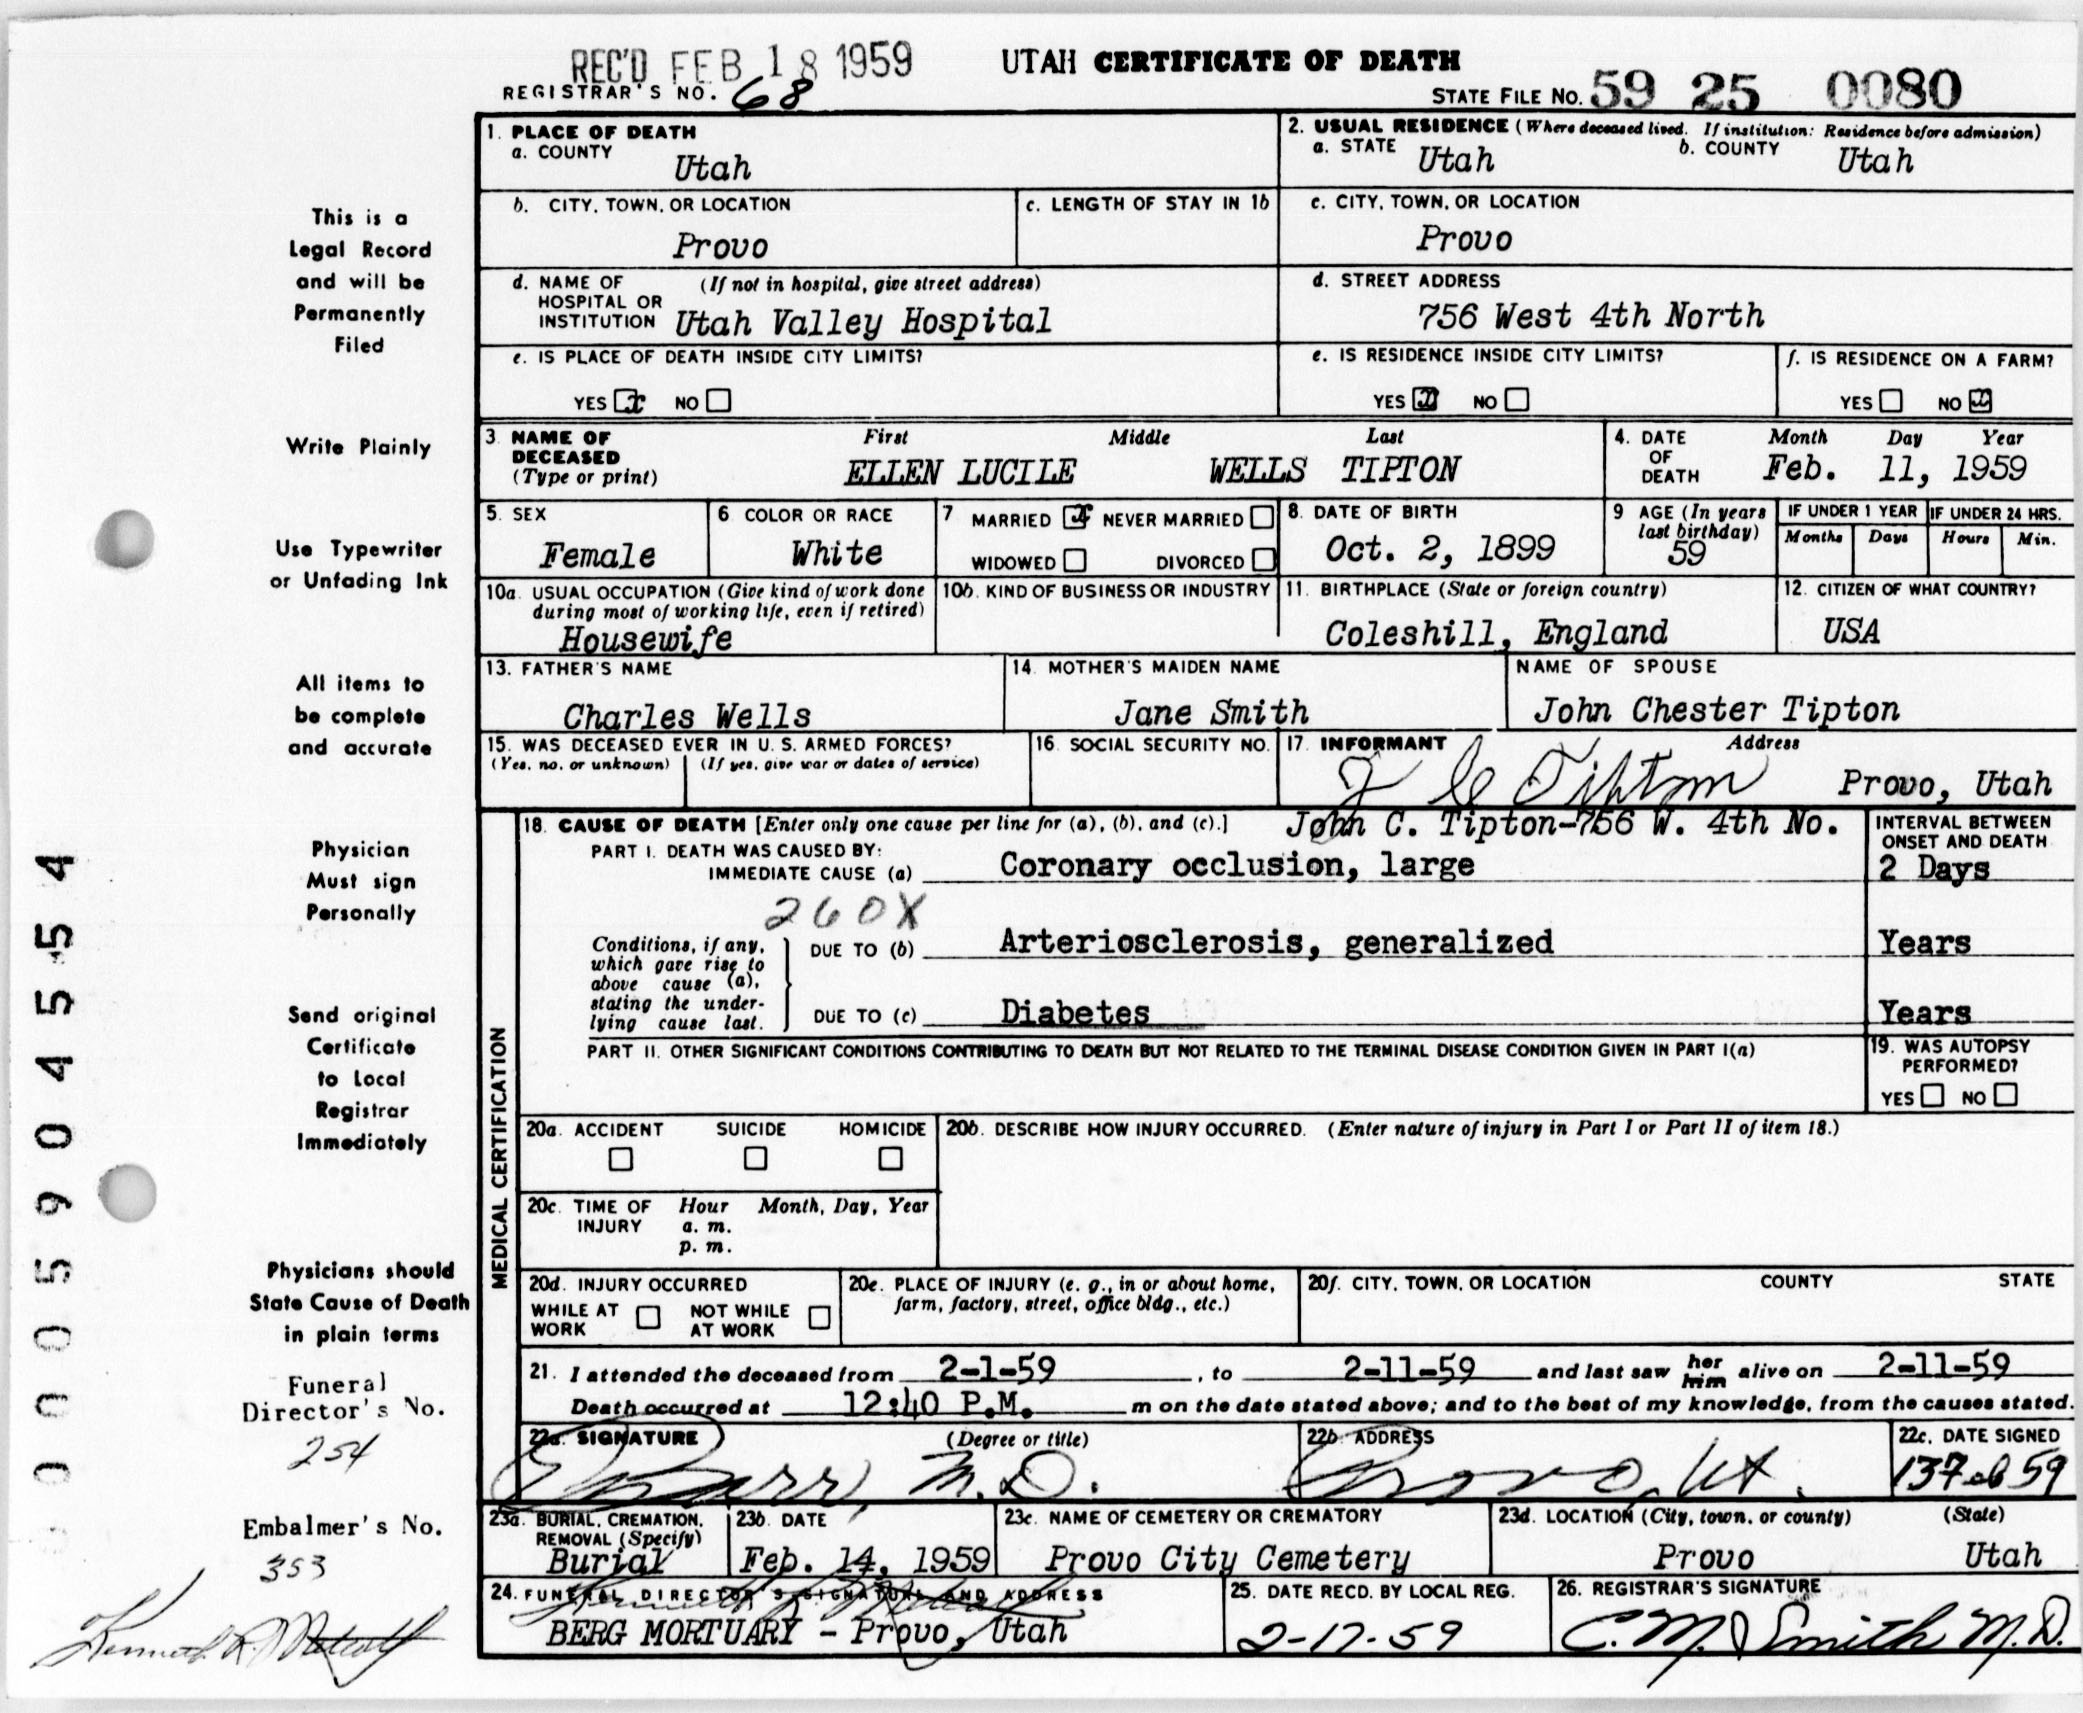 REC'D FEB 18 1959
UTAH CERTIFICATE OF DEATH
REGISTRAR'S NO. 68
STATE FILE NO. 59 25 0080
This is a
Legal Record
and will be
Permanently
Filed
Write Plainly
Use Typewriter
or Unfading Ink
All items to
be complete
and accurate
Physician
Must sign
Personally
Send original
Certificate
to Local
Registrar
Immediately
Physicians should
State Cause of Death
in plain terms
Funeral
Director's No.
254
Embalmer's No.
353
Kenneth R. Metcalf
0005904554
1. PLACE OF DEATH
a. COUNTY
Utah
2. USUAL RESIDENCE (Where deceased lived. If institution: Residence before admission)
a. STATE Utah b. COUNTY Utah
b. CITY, TOWN, OR LOCATION
Provo
c. LENGTH OF STAY IN 1b
c. CITY, TOWN, OR LOCATION
Provo
d. NAME OF (If not in hospital, give street address)
HOSPITAL OR
INSTITUTION Utah Valley Hospital
d. STREET ADDRESS
756 West 4th North
e. IS PLACE OF DEATH INSIDE CITY LIMITS?
YES x NO
e. IS RESIDENCE INSIDE CITY LIMITS?
YES x NO
f. IS RESIDENCE ON A FARM?
YES NO x
3. NAME OF First Middle Last
DECEASED
(Type or print) ELLEN LUCILE WELLS TIPTON
4. DATE Month Day Year
OF
DEATH Feb. 11, 1959
5. SEX
Female
6 COLOR OR RACE
White
7 MARRIED x NEVER MARRIED
WIDOWED DIVORCED
8. DATE OF BIRTH
Oct. 2, 1899
9 AGE (In years
last birthday)
59
IF UNDER 1 YEAR
Months Days
IF UNDER 24 HRS.
Hours Min.
10a. USUAL OCCUPATION (Give kind of work done
during most of working life, even if retired)
Housewife
10b. KIND OF BUSINESS OR INDUSTRY
11. BIRTHPLACE (State or foreign country)
Coleshill, England
12. CITIZEN OF WHAT COUNTRY?
USA
13. FATHER'S NAME
Charles Wells
14. MOTHER'S MAIDEN NAME
Jane Smith
NAME OF SPOUSE
John Chester Tipton
15. WAS DECEASED EVER IN U. S. ARMED FORCES?
(Yes, no, or unknown) (If yes, give war or dates of service)
16. SOCIAL SECURITY NO.
17. INFORMANT Address
J C Tipton Provo, Utah
John C. Tipton-756 W. 4th No.
MEDICAL CERTIFICATION
18. CAUSE OF DEATH [Enter only one cause per line for (a), (b), and (c).]
INTERVAL BETWEEN
ONSET AND DEATH
PART I. DEATH WAS CAUSED BY:
IMMEDIATE CAUSE (a) Coronary occlusion, large 2 Days
260X
Conditions, if any,
which gave rise to
above cause (a),
stating the under-
lying cause last.
DUE TO (b) Arteriosclerosis, generalized Years
DUE TO (c) Diabetes Years
PART II. OTHER SIGNIFICANT CONDITIONS CONTRIBUTING TO DEATH BUT NOT RELATED TO THE TERMINAL DISEASE CONDITION GIVEN IN PART I(a)
19. WAS AUTOPSY
PERFORMED?
YES NO
20a. ACCIDENT SUICIDE HOMICIDE
20b. DESCRIBE HOW INJURY OCCURRED. (Enter nature of injury in Part I or Part II of item 18.)
20c. TIME OF Hour Month, Day, Year
INJURY a. m.
p. m.
20d. INJURY OCCURRED
WHILE AT NOT WHILE
WORK AT WORK
20e. PLACE OF INJURY (e. g., in or about home,
farm, factory, street, office bldg., etc.)
20f. CITY, TOWN, OR LOCATION COUNTY STATE
21. I attended the deceased from 2-1-59, to 2-11-59 and last saw her him alive on 2-11-59
Death occurred at 12:40 P.M. m on the date stated above; and to the best of my knowledge, from the causes stated.
22a. SIGNATURE (Degree or title)
M.D.
22b. ADDRESS
Provo, Ut.
22c. DATE SIGNED
13 Feb 59
23a. BURIAL, CREMATION,
REMOVAL (Specify)
Burial
23b. DATE
Feb. 14, 1959
23c. NAME OF CEMETERY OR CREMATORY
Provo City Cemetery
23d. LOCATION (City, town, or county) (State)
Provo Utah
24. FUNERAL DIRECTOR'S SIGNATURE AND ADDRESS
BERG MORTUARY - Provo, Utah
25. DATE RECD. BY LOCAL REG.
2-17-59
26. REGISTRAR'S SIGNATURE
C. M. Smith M.D.